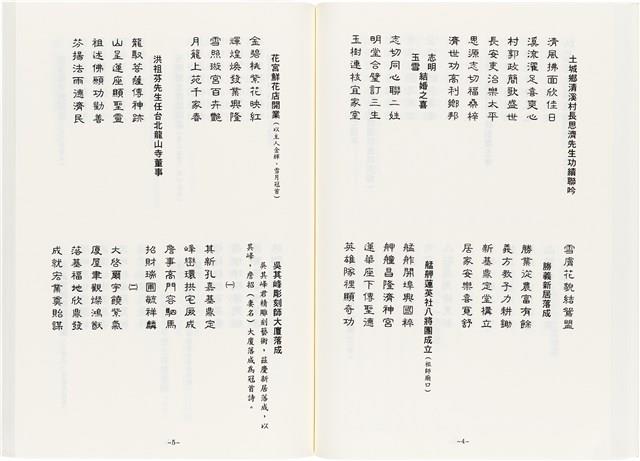 土城鄉清溪村長思濟先生功績聯吟
清風拂面欣佳日
溪流濯足喜爽心
村郭政簡歌盛世
長安吏治樂太平
思源志切福桑梓
濟世功高利鄉邦
志明
玉雪
結婚之喜
志切同心聯二姓
明堂合璧訂三生
玉樹連枝宜家室
雪膚花貌結鴛盟
勝義新居落成
勝業從農富有餘
義方教子力耕鋤
新基鼎定堂構立
居家安樂喜寬舒
艋舺蓮英社八將團成立(祖師廟口)
艋舺開埠興國粹
舺艟昌隆濟神宮
蓮華座下傳聖德
英雄隊裡顯奇功
-4-
花宮鮮花店開業(以主人金輝，雪月冠首)
金碧桃紫花映紅
輝煌煥發業興隆
雪點璇宮百卉艷
月籠上苑千家春
洪祖芬先生任台北龍山寺董事
龍馭菩薩傳神跡
山呈蓮座顯聖靈
祖述佛願功勸善
芬揚法雨德濟民
吳其峰彫刻師大廈落成
吳其峰君精雕刻藝術，茲慶新居落成，以
其峰，詹招（妻名）大廈落成為冠首詩。
㈠
其新孔嘉基鼎定
峰巒環拱宅厥成
詹事高門容駟馬
招財瑞圃毓祥麟
㈡
大啓爾宇饒紫氣
廈屋聿觀燦鴻猷
落基福地欣鼎發
成就宏業奠貽謀
-5-